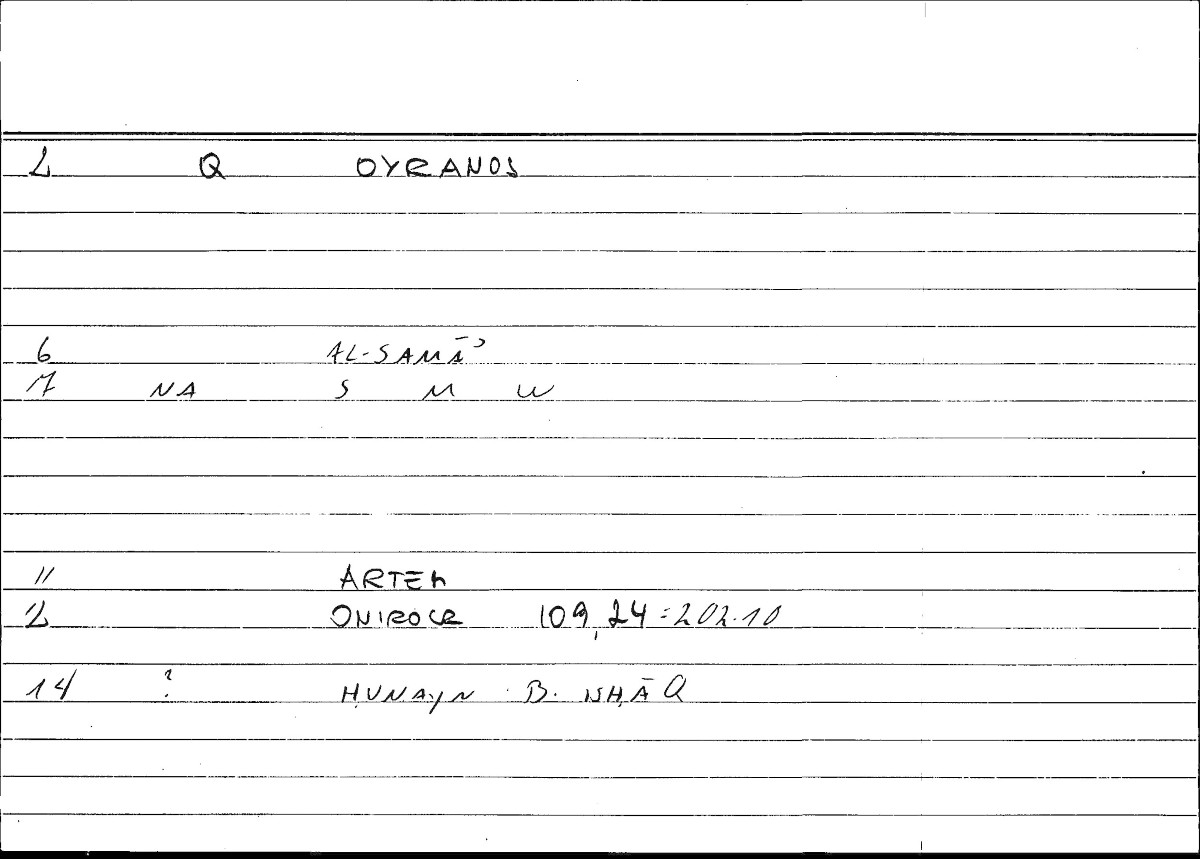 2 Q OYRANOS
6 AL-SAMĀʾ
7 NA S M W
11 ARTEM
12 ONIROCR 109,24=202.10
14 ? ḤUNAYN B. ISḤĀQ